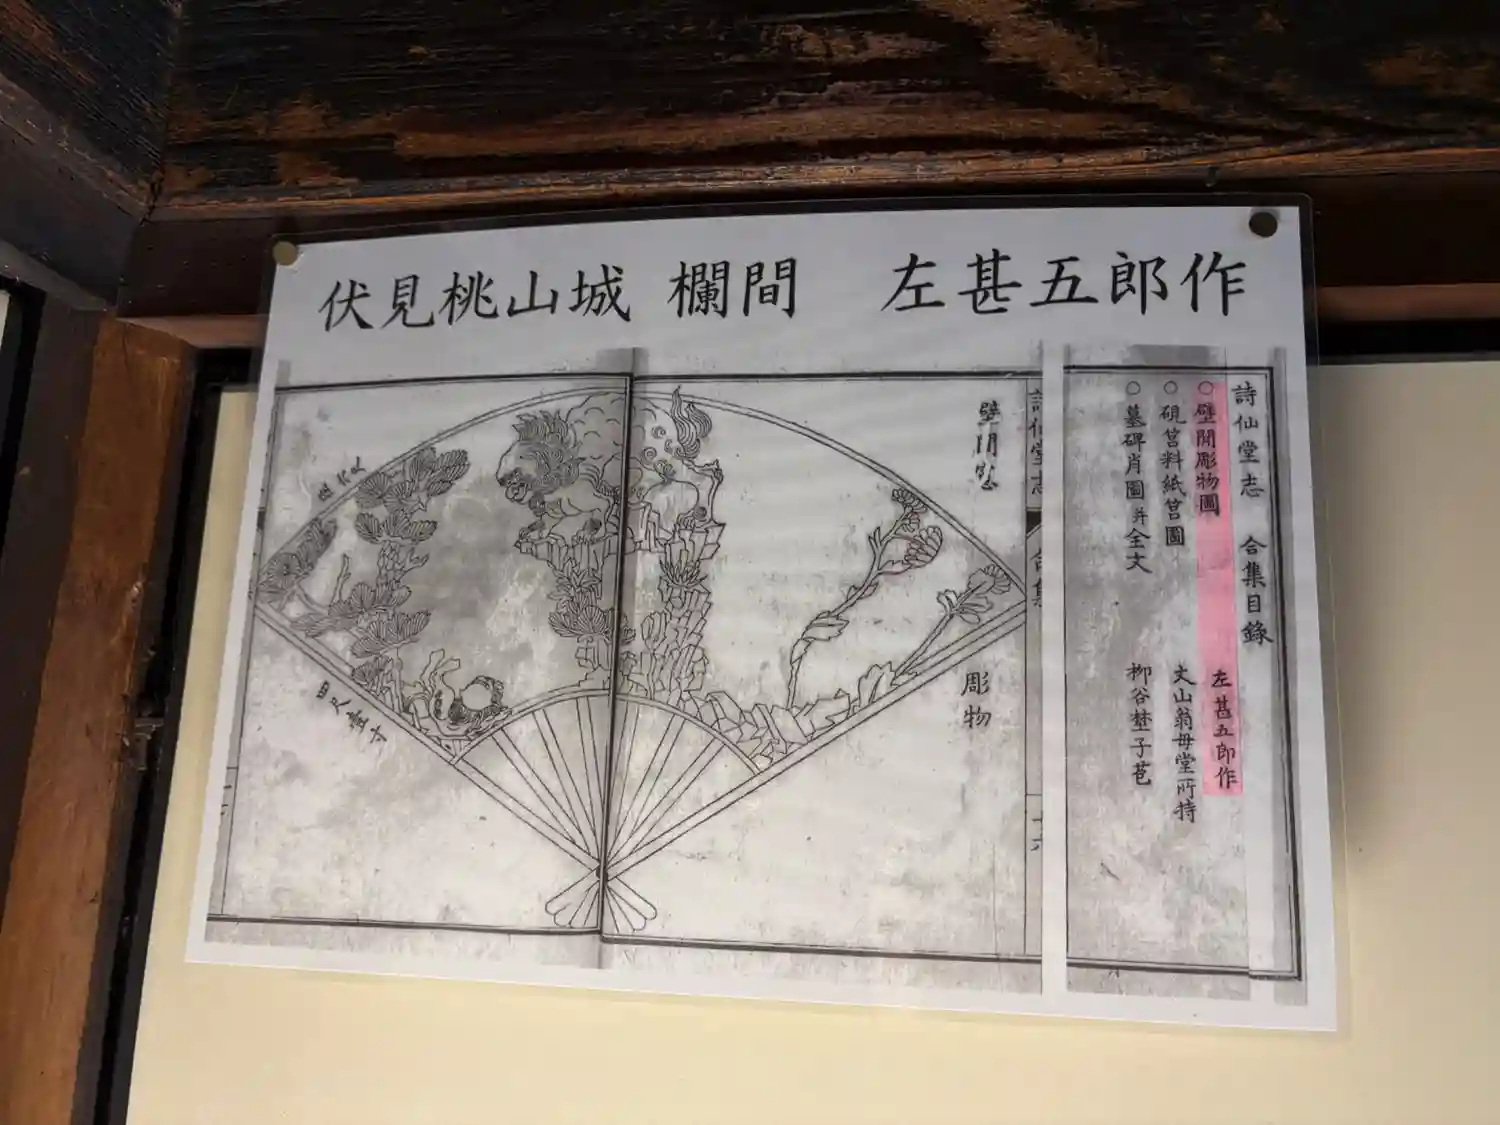 伏見桃山城 欄間 左甚五郎作
詩仙堂志 合集目錄
○壁間彫物圖 左甚五郎作
○硯筥料紙筥圖 丈山翁毋堂所持
○墓碑肖圖并全文 柳谷埜子苞
詩仙堂志
合集
十六
彫物